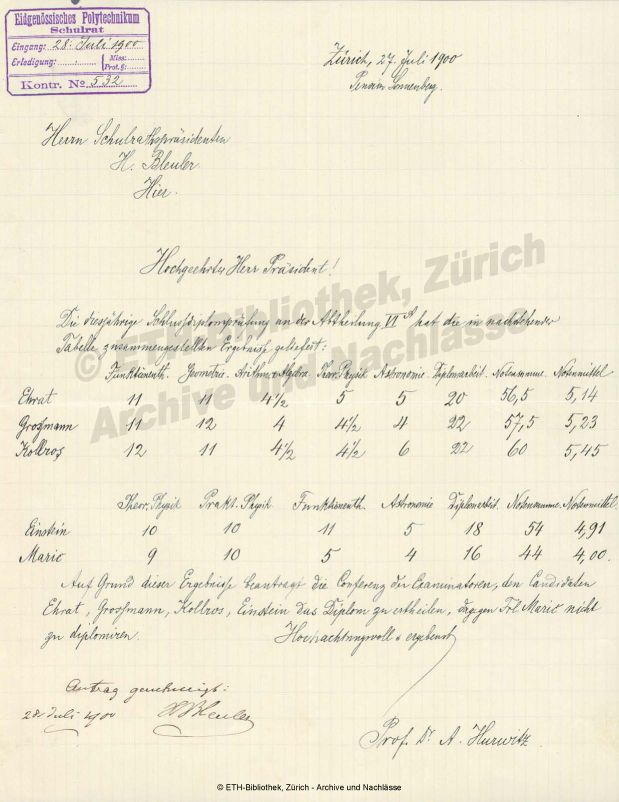 Eidgenössisches Polytechnikum
Schulrat
Eingang: 28. Juli 1900
Erledigung: Miss: Prot. §:
Kontr. No 532
Zürich, 27. Juli 1900
Pension Sonnenberg.
Herrn Schulrathspräsidenten
H. Bleuler
Hier.
Hochgeehrter Herr Präsident!
Die diesjährige Schlussdiplomprüfung an der Abtheilung VI A hat die in nachstehender
Tabelle zusammengestellten Ergebnisse geliefert:
Funktionenth. Geometrie. Arithm.u.Algebra Theor. Physik Astronomie. Diplomarbeit. Notensumme. Notenmittel
Ehrat 11 11 4½ 5 5 20 56,5 5,14
Grossmann 11 12 4 4½ 4 22 57,5 5,23
Kollros 12 11 4½ 4½ 6 22 60 5,45
Theor. Physik Prakt. Physik Funktionenth. Astronomie Diplomarbeit. Notensumme. Notenmittel.
Einstein 10 10 11 5 18 54 4,91
Maric 9 10 5 4 16 44 4,00.
Auf Grund dieser Ergebnisse beantragt die Conferenz der Examinatoren, den Candidaten
Ehrat, Grossmann, Kollros, Einstein das Diplom zu ertheilen, dagegen Frl Maric nicht
zu diplomiren.
Hochachtungsvoll u ergebenst
Antrag genehmigt:
28 Juli 1900 H Bleuler
Prof. Dr. A. Hurwitz.
© ETH-Bibliothek, Zürich
Archive und Nachlässe
© ETH-Bibliothek, Zürich - Archive und Nachlässe